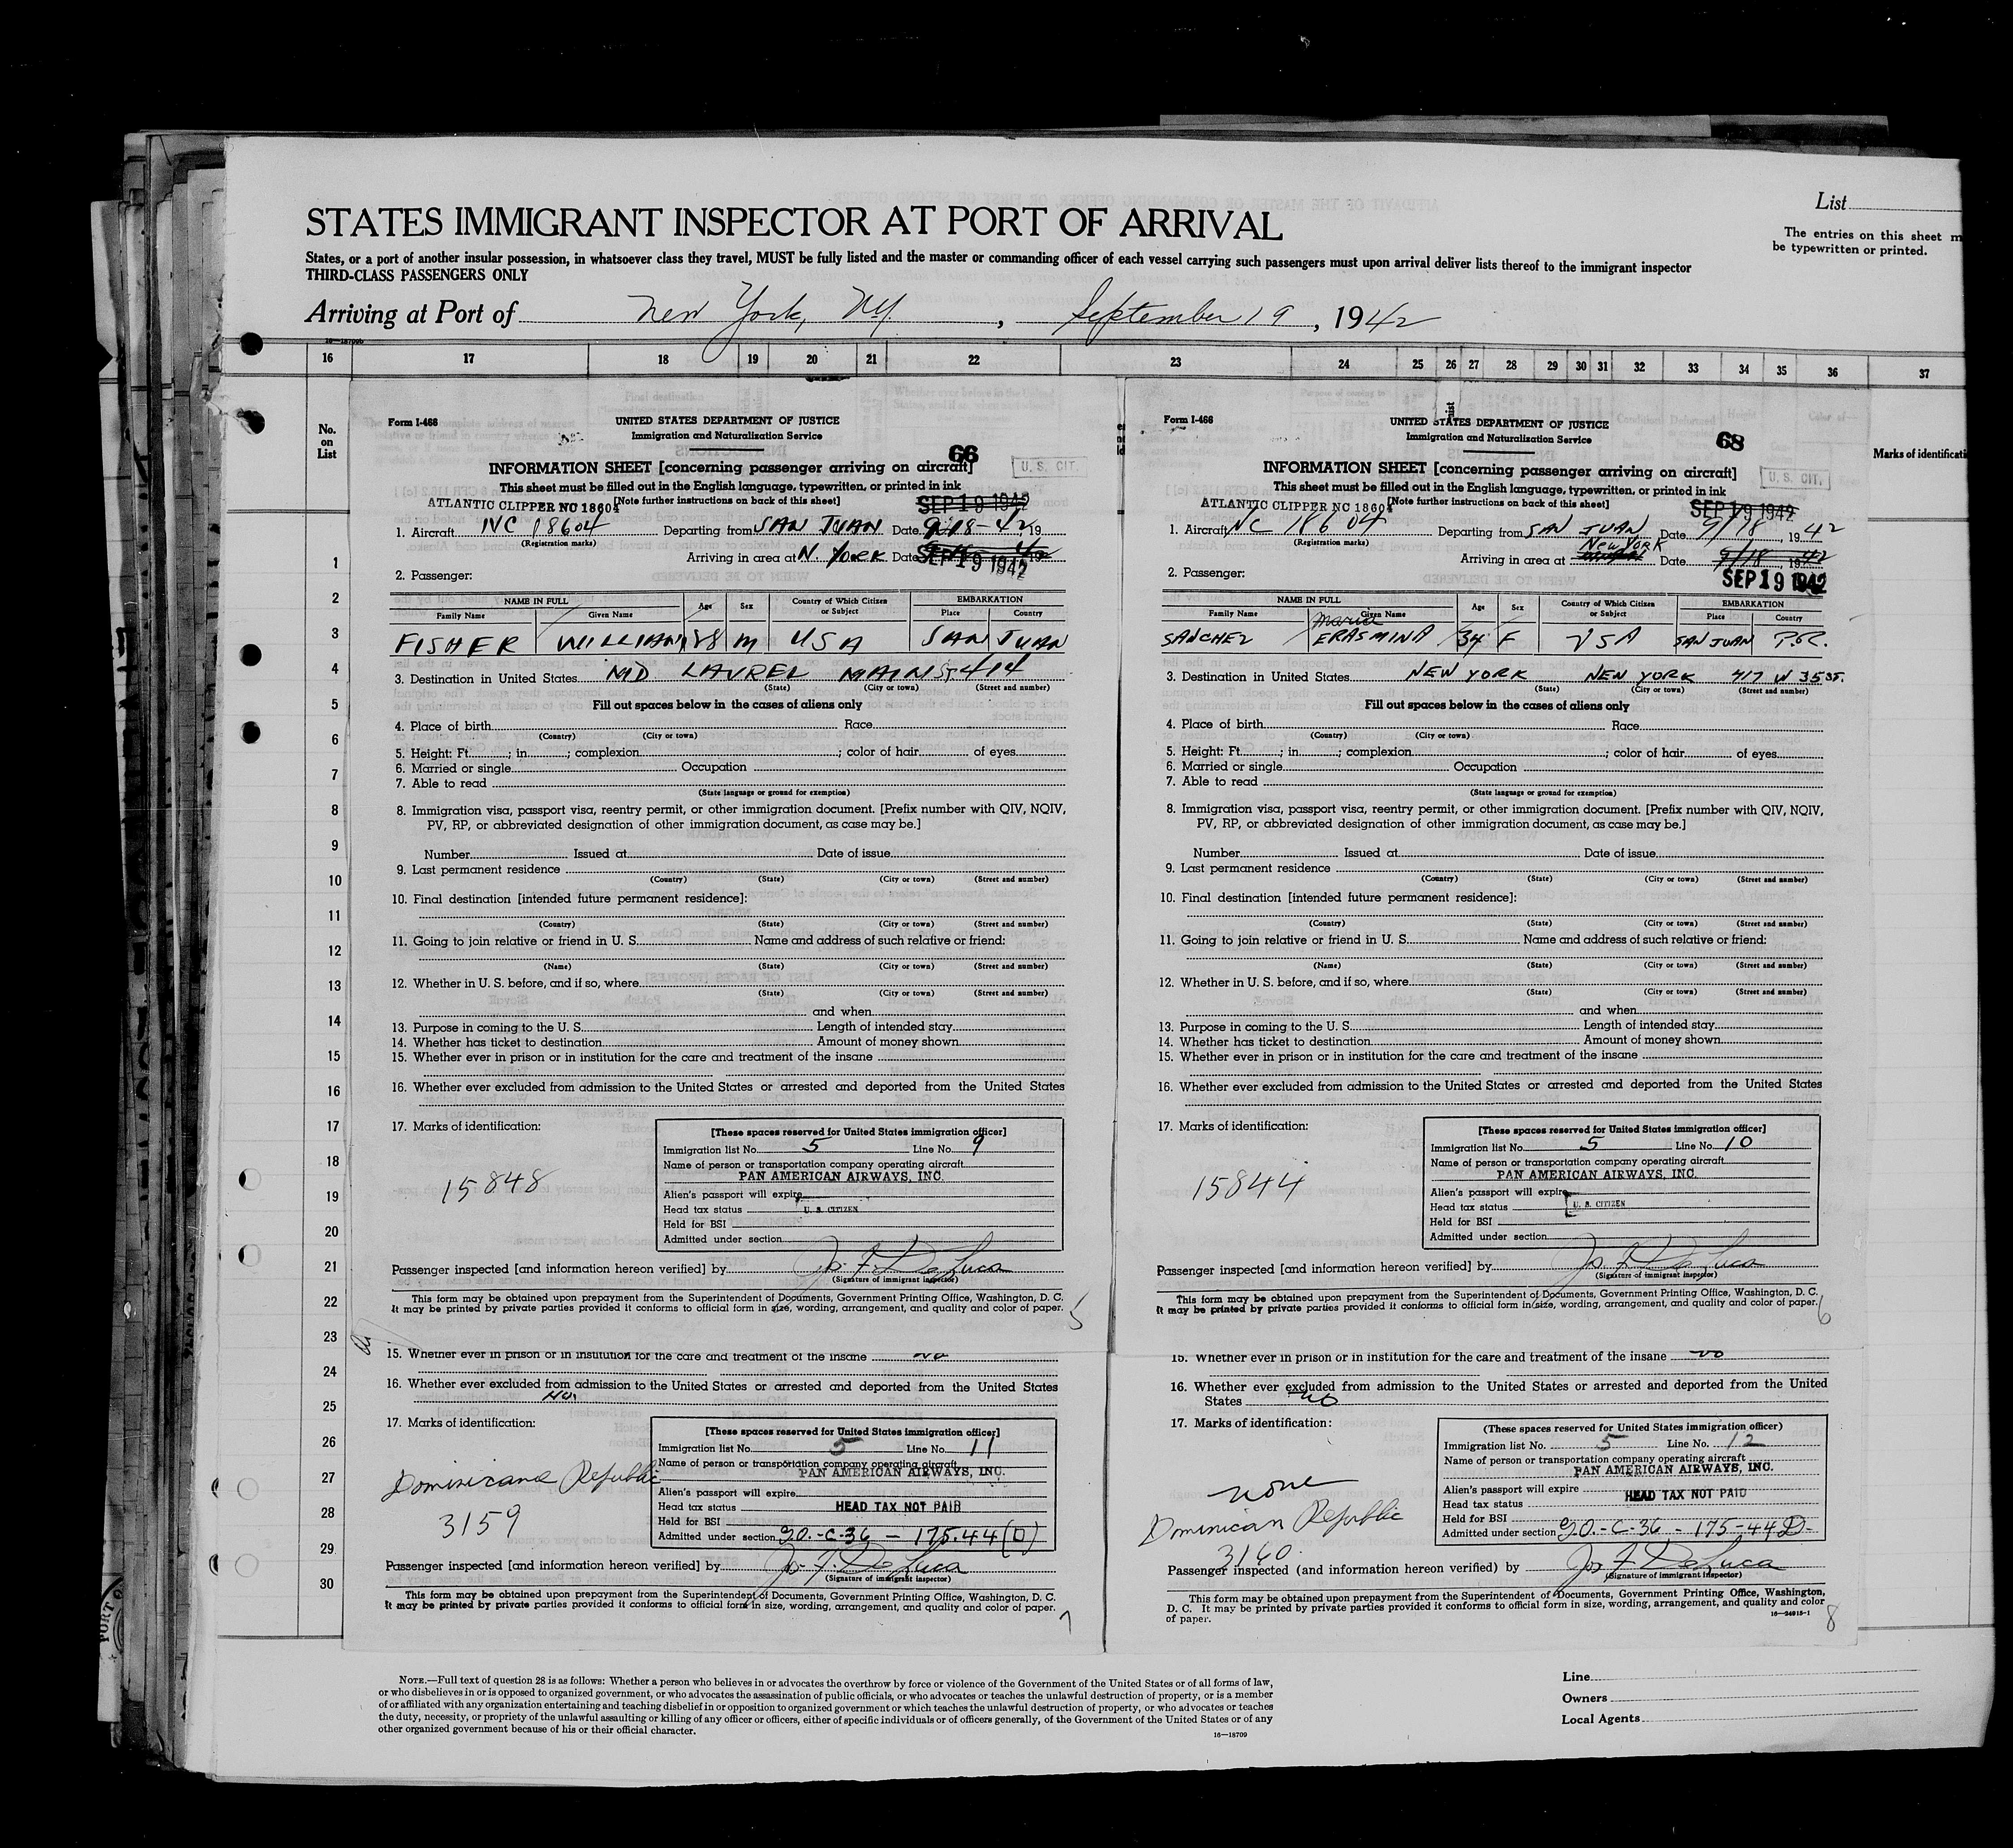 STATES IMMIGRANT INSPECTOR AT PORT OF ARRIVAL
List
The entries on this sheet m
be typewritten or printed.
States, or a port of another insular possession, in whatsoever class they travel, MUST be fully listed and the master or commanding officer of each vessel carrying such passengers must upon arrival deliver lists thereof to the immigrant inspector
THIRD-CLASS PASSENGERS ONLY
Arriving at Port of New York, NY, September 19, 1942
16 17 18 19 20 21 22 23 24 25 26 27 28 29 30 31 32 33 34 35 36 37
No. on List
Marks of identificati
1
2
3
4
5
6
7
8
9
10
11
12
13
14
15
16
17
18
19
20
21
22
23
24
25
26
27
28
29
30
Form I-466
UNITED STATES DEPARTMENT OF JUSTICE
Immigration and Naturalization Service
66
U. S. CIT.
INFORMATION SHEET [concerning passenger arriving on aircraft]
This sheet must be filled out in the English language, typewritten, or printed in ink
[Note further instructions on back of this sheet]
ATLANTIC CLIPPER NC 18604
SEP 19 1942
1. Aircraft NC 18604 Departing from SAN JUAN Date 9-18-42, 19
(Registration marks)
Arriving in area at N. YORK Date SEP 19 1942
2. Passenger:
NAME IN FULL Age Sex Country of Which Citizen or Subject EMBARKATION
Family Name Given Name Place Country
FISHER WILLIAM 28 M USA SAN JUAN
3. Destination in United States MD LAUREL MAIN ST 414
(State) (City or town) (Street and number)
Fill out spaces below in the cases of aliens only
4. Place of birth Race
(Country) (City or town)
5. Height: Ft. ; in. ; complexion ; color of hair of eyes
6. Married or single Occupation
7. Able to read
(State language or ground for exemption)
8. Immigration visa, passport visa, reentry permit, or other immigration document. [Prefix number with QIV, NQIV,
PV, RP, or abbreviated designation of other immigration document, as case may be.]
Number Issued at Date of issue
9. Last permanent residence
(Country) (State) (City or town) (Street and number)
10. Final destination [intended future permanent residence]:
(Country) (State) (City or town) (Street and number)
11. Going to join relative or friend in U. S. Name and address of such relative or friend:
(Name) (State) (City or town) (Street and number)
12. Whether in U. S. before, and if so, where
(State) (City or town) (Street and number)
and when
13. Purpose in coming to the U. S. Length of intended stay
14. Whether has ticket to destination Amount of money shown
15. Whether ever in prison or in institution for the care and treatment of the insane
16. Whether ever excluded from admission to the United States or arrested and deported from the United States
17. Marks of identification:
15848
[These spaces reserved for United States immigration officer]
Immigration list No. 5 Line No. 9
Name of person or transportation company operating aircraft
PAN AMERICAN AIRWAYS, INC.
Alien's passport will expire
Head tax status U. S. CITIZEN
Held for BSI
Admitted under section
Passenger inspected [and information hereon verified] by Jos. F. DeLuca
(Signature of immigrant inspector)
This form may be obtained upon prepayment from the Superintendent of Documents, Government Printing Office, Washington, D. C.
It may be printed by private parties provided it conforms to official form in size, wording, arrangement, and quality and color of paper.
5
Form I-466
UNITED STATES DEPARTMENT OF JUSTICE
Immigration and Naturalization Service
68
U. S. CIT.
INFORMATION SHEET [concerning passenger arriving on aircraft]
This sheet must be filled out in the English language, typewritten, or printed in ink
[Note further instructions on back of this sheet]
ATLANTIC CLIPPER NC 18604
SEP 19 1942
1. Aircraft NC 18604 Departing from SAN JUAN Date 9/18, 1942
(Registration marks)
Arriving in area at New YORK Date 9/18, 1942
SEP 19 1942
2. Passenger:
NAME IN FULL Age Sex Country of Which Citizen or Subject EMBARKATION
Family Name Given Name Place Country
SANCHEZ Maria ERASMINA 34 F USA SAN JUAN P.R.
3. Destination in United States NEW YORK NEW YORK 417 W 35 ST.
(State) (City or town) (Street and number)
Fill out spaces below in the cases of aliens only
4. Place of birth Race
(Country) (City or town)
5. Height: Ft. ; in. ; complexion ; color of hair of eyes
6. Married or single Occupation
7. Able to read
(State language or ground for exemption)
8. Immigration visa, passport visa, reentry permit, or other immigration document. [Prefix number with QIV, NQIV,
PV, RP, or abbreviated designation of other immigration document, as case may be.]
Number Issued at Date of issue
9. Last permanent residence
(Country) (State) (City or town) (Street and number)
10. Final destination [intended future permanent residence]:
(Country) (State) (City or town) (Street and number)
11. Going to join relative or friend in U. S. Name and address of such relative or friend:
(Name) (State) (City or town) (Street and number)
12. Whether in U. S. before, and if so, where
(State) (City or town) (Street and number)
and when
13. Purpose in coming to the U. S. Length of intended stay
14. Whether has ticket to destination Amount of money shown
15. Whether ever in prison or in institution for the care and treatment of the insane
16. Whether ever excluded from admission to the United States or arrested and deported from the United States
17. Marks of identification:
15844
[These spaces reserved for United States immigration officer]
Immigration list No. 5 Line No. 10
Name of person or transportation company operating aircraft
PAN AMERICAN AIRWAYS, INC.
Alien's passport will expire
Head tax status U. S. CITIZEN
Held for BSI
Admitted under section
Passenger inspected [and information hereon verified] by Jos. F. DeLuca
(Signature of immigrant inspector)
This form may be obtained upon prepayment from the Superintendent of Documents, Government Printing Office, Washington, D. C.
It may be printed by private parties provided it conforms to official form in size, wording, arrangement, and quality and color of paper.
6
15. Whether ever in prison or in institution for the care and treatment of the insane No
16. Whether ever excluded from admission to the United States or arrested and deported from the United States
No.
17. Marks of identification:
Dominicana Republic
3159
[These spaces reserved for United States immigration officer]
Immigration list No. 5 Line No. 11
Name of person or transportation company operating aircraft
PAN AMERICAN AIRWAYS, INC.
Alien's passport will expire
Head tax status HEAD TAX NOT PAID
Held for BSI
Admitted under section G.O.-C-36 - 175.44 (D)
Passenger inspected [and information hereon verified] by Jos. F. DeLuca
(Signature of immigrant inspector)
This form may be obtained upon prepayment from the Superintendent of Documents, Government Printing Office, Washington, D. C.
It may be printed by private parties provided it conforms to official form in size, wording, arrangement, and quality and color of paper.
7
15. Whether ever in prison or in institution for the care and treatment of the insane no
16. Whether ever excluded from admission to the United States or arrested and deported from the United
States no
17. Marks of identification:
none
Dominican Republic
3160.
(These spaces reserved for United States immigration officer)
Immigration list No. 5 Line No. 12
Name of person or transportation company operating aircraft
PAN AMERICAN AIRWAYS, INC.
Alien's passport will expire
Head tax status HEAD TAX NOT PAID
Held for BSI
Admitted under section G.O.-C-36 - 175-44 D-
Passenger inspected (and information hereon verified) by Jos F DeLuca
(Signature of immigrant inspector)
This form may be obtained upon prepayment from the Superintendent of Documents, Government Printing Office, Washington,
D. C. It may be printed by private parties provided it conforms to official form in size, wording, arrangement, and quality and color
of paper.
16-24915-1
8
NOTE.—Full text of question 28 is as follows: Whether a person who believes in or advocates the overthrow by force or violence of the Government of the United States or of all forms of law,
or who disbelieves in or is opposed to organized government, or who advocates the assassination of public officials, or who advocates or teaches the unlawful destruction of property, or is a member
of or affiliated with any organization entertaining and teaching disbelief in or opposition to organized government or which teaches the unlawful destruction of property, or who advocates or teaches
the duty, necessity, or propriety of the unlawful assaulting or killing of any officer or officers, either of specific individuals or of officers generally, of the Government of the United States or of any
other organized government because of his or their official character.
16—18709
Line
Owners
Local Agents